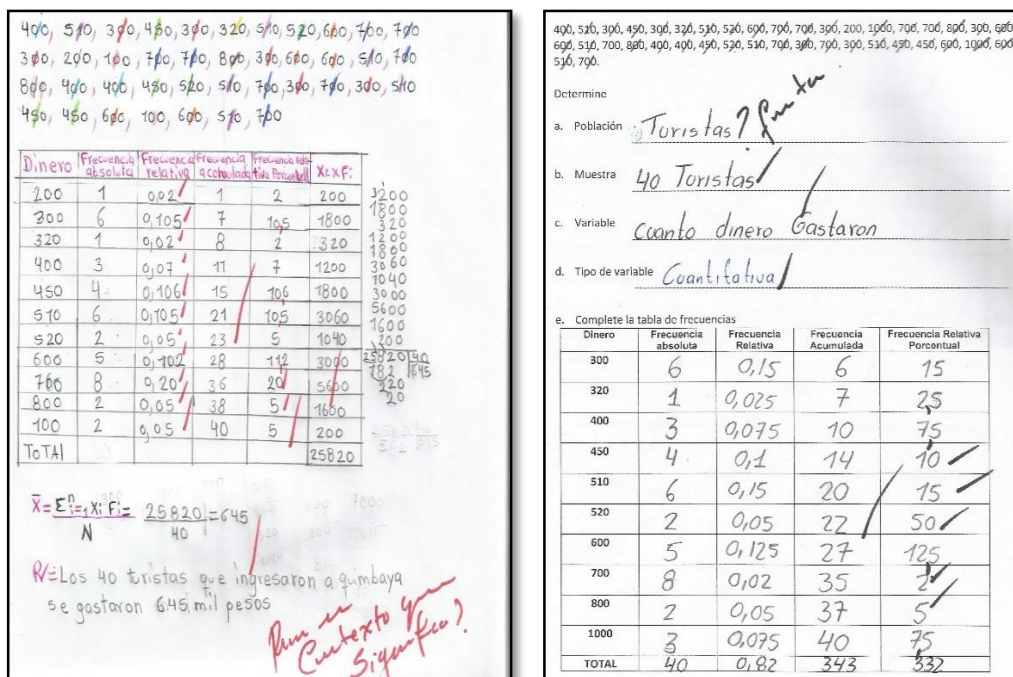 400, 510, 300, 450, 300, 320, 510, 520, 600, 700, 700
300, 200, 100, 700, 700, 800, 300, 600, 600, 510, 700
800, 400, 400, 450, 520, 510, 700, 300, 700, 300, 510
450, 450, 600, 100, 600, 510, 700
Dinero Frecuencia absoluta Frecuencia relativa Frecuencia acomulada Frecuencia relativa Porcentual Xi x Fi
200 1 0,02 1 2 200
300 6 0,105 7 105 1800
320 1 0,02 8 2 320
400 3 0,07 11 7 1200
450 4 0,106 15 106 1800
510 6 0,105 21 105 3060
520 2 0,05 23 5 1040
600 5 0,102 28 112 3000
700 8 0,20 36 20 5600
800 2 0,05 38 5 1600
100 2 0,05 40 5 200
ToTAl 25820
200
1800
320
1200
1800
3060
1040
3000
5600
1600
200
25820 40
182 645
220
20
X̄ = Σⁿi=1 Xi Fi = 25820 = 645
N 40
R/= Los 40 turistas que ingresaron a quimbaya
se gastaron 645 mil pesos
Contexto que
Significa?
400, 510, 300, 450, 300, 320, 510, 520, 600, 700, 700, 300, 200, 1000, 700, 700, 800, 300, 600
600, 510, 700, 800, 400, 400, 450, 520, 510, 700, 300, 700, 300, 510, 450, 450, 600, 1000, 600
510, 700.
Determine
a. Población Turistas ?
b. Muestra 40 Turistas
c. Variable cuanto dinero Gastaron
d. Tipo de variable Cuantitativa
e. Complete la tabla de frecuencias
Dinero Frecuencia absoluta Frecuencia Relativa Frecuencia Acumulada Frecuencia Relativa Porcentual
300 6 0,15 6 15
320 1 0,025 7 2,5
400 3 0,075 10 7,5
450 4 0,1 14 10
510 6 0,15 20 15
520 2 0,05 22 50
600 5 0,125 27 12,5
700 8 0,02 35 2
800 2 0,05 37 5
1000 3 0,075 40 7,5
TOTAL 40 0,82 343 332